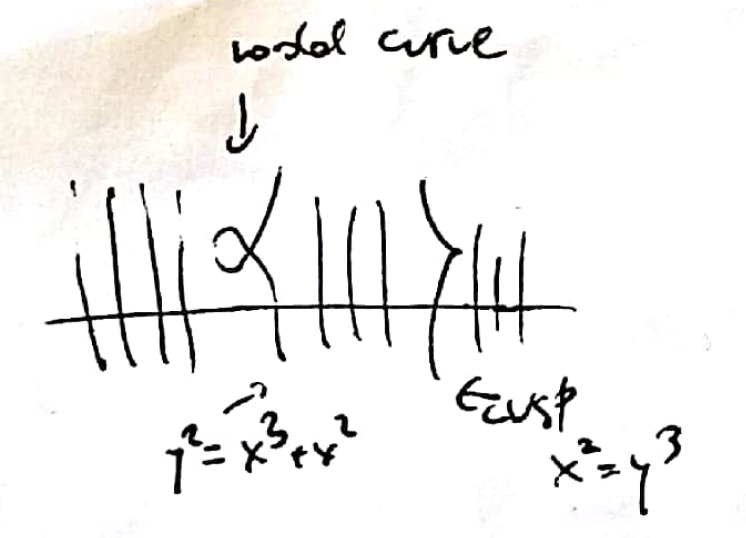 nodal curve
y² = x³ + x²
cusp
x² = y³